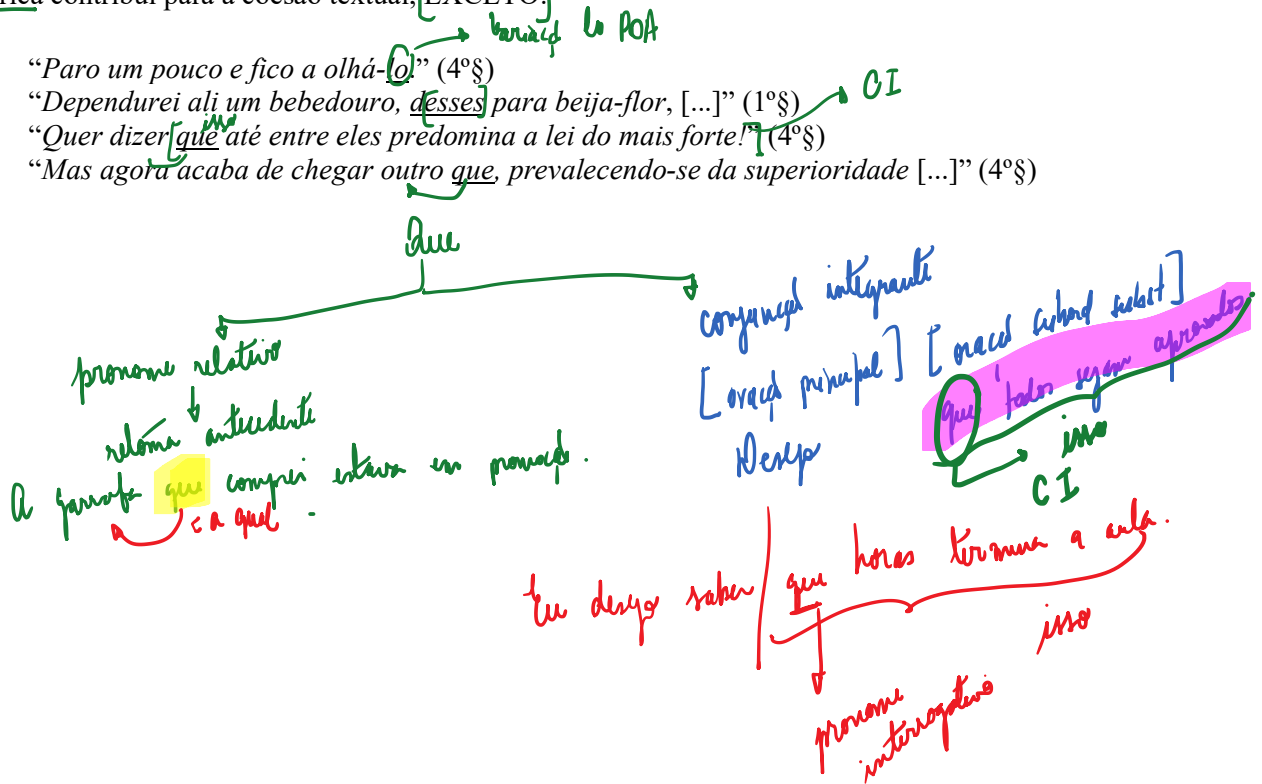 rica contribui para a coesão textual, [EXCETO:]
variaçã lo POA
“Paro um pouco e fico a olhá-lo.” (4º§)
CI
“Dependurei ali um bebedouro, desses para beija-flor, [...]” (1º§)
isso
“Quer dizer [que até entre eles predomina a lei do mais forte!”] (4º§)
“Mas agora acaba de chegar outro que, prevalecendo-se da superioridade [...]” (4º§)
Que
pronome relativo
retoma antecedente
A garrafa que comprei estava em promoção.
= a qual
conjunção integrante
[oração principal] [oração subord subst]
Desejo que todos sejam aprovados
isso
CI
Eu desejo saber | que horas termina a aula.
isso
pronome
interrogativo